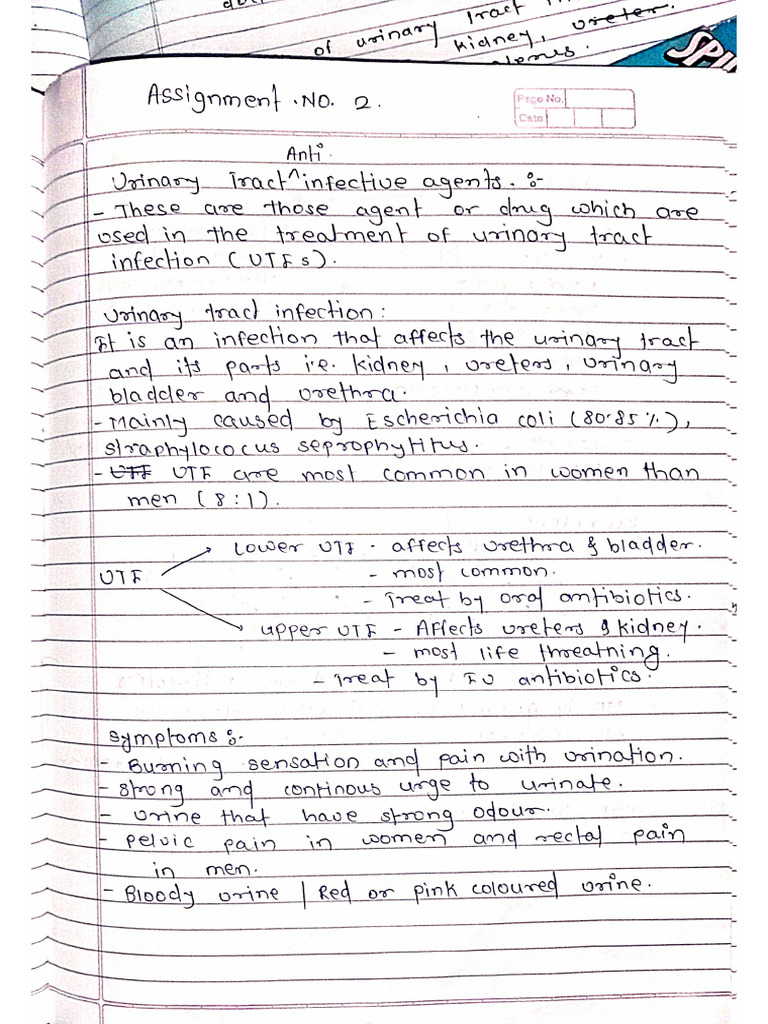 of urinary tract
kidney, ureter.
SPI
Assignment .NO. 2.
Page No.
Date
Anti
Urinary Tract ^ infective agents. :-
- These are those agent or drug which are
used in the treatment of urinary tract
infection (UTIs).
Urinary tract infection:
It is an infection that affects the urinary tract
and its parts i.e. kidney, ureters, urinary
bladder and urethra.
- Mainly caused by Escherichia coli (80-85%),
straphylococus seprophytitus.
- UTI UTI are most common in women than
men (8:1).
Lower UTI - affects urethra & bladder.
UTI
- most common.
- Treat by oral antibiotics.
upper UTI - Affects ureters & kidney.
- most life threatning.
- Treat by IV antibiotics.
Symptoms :-
- Burning sensation and pain with urination.
- Strong and continous urge to urinate.
- Urine that have strong odour.
- Pelvic pain in women and rectal pain
in men.
- Bloody urine / Red or pink coloured urine.